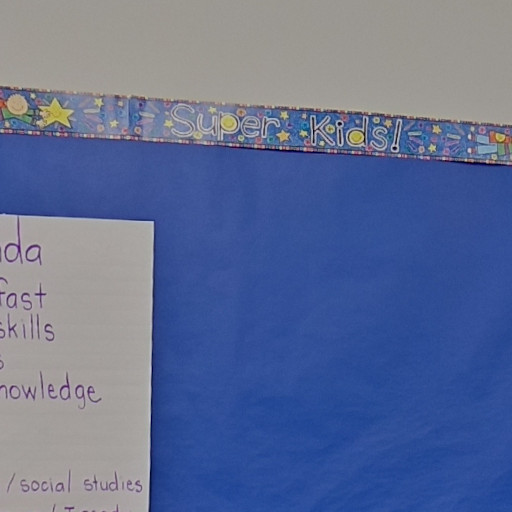 Super Kids!
nda
fast
skills
s
nowledge
/social studies